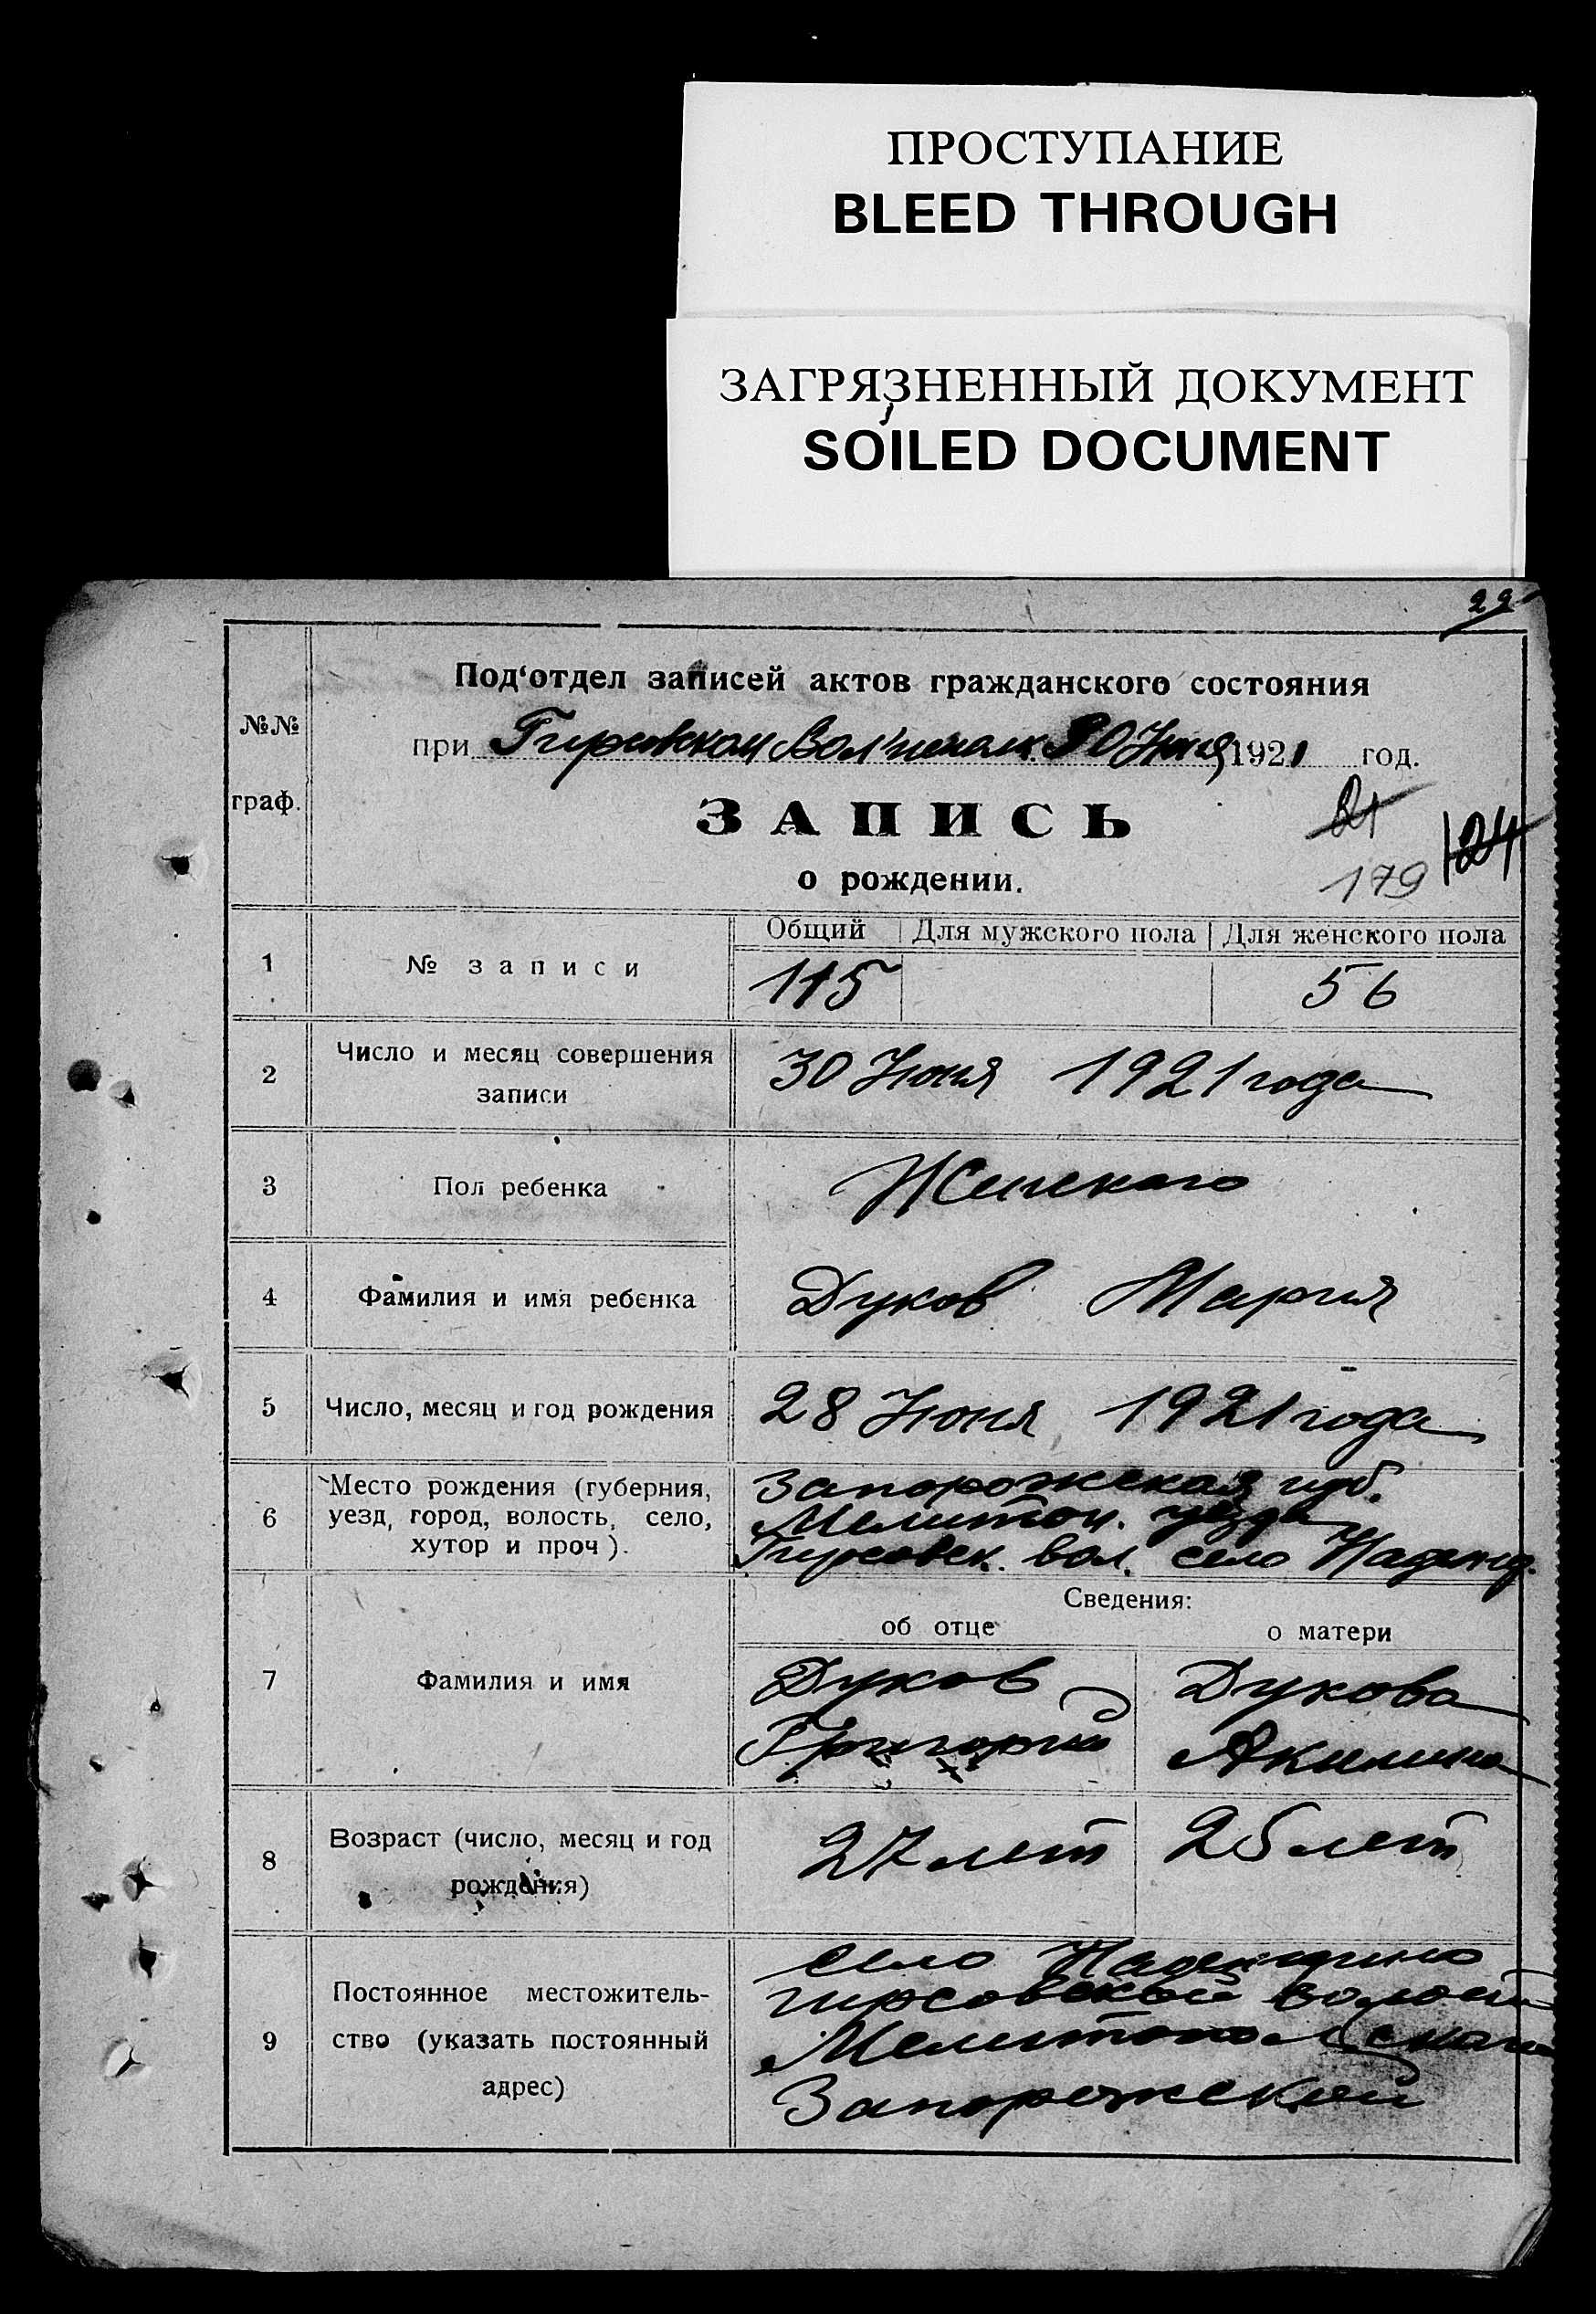 ПРОСТУПАНИЕ
BLEED THROUGH
ЗАГРЯЗНЕННЫЙ ДОКУМЕНТ
SOILED DOCUMENT
29
Под‘отдел записей актов гражданского состояния
№№
граф.
при Гирсовском Вол 30 Июня 1921 год.
ЗАПИСЬ
о рождении.
21
124
179
Общий Для мужского пола Для женского пола
1 № записи 115 56
2 Число и месяц совершения
записи
30 Июня 1921 года
3 Пол ребенка Женского
4 Фамилия и имя ребенка Дуков Мария
5 Число, месяц и год рождения 28 Июня 1921 года
6 Место рождения (губерния,
уезд, город, волость, село,
хутор и проч).
Запорожская губ.
Мелитоп. уезда
Гирсовск. вол. село Надежд.
Сведения:
об отце о матери
7 Фамилия и имя
Дуков Дукова
Григорий Акилина
8 Возраст (число, месяц и год
рождения)
27 лет 25 лет
9 Постоянное местожитель-
ство (указать постоянный
адрес)
село
гирсовской волости
Мелитопольского
Запорожской